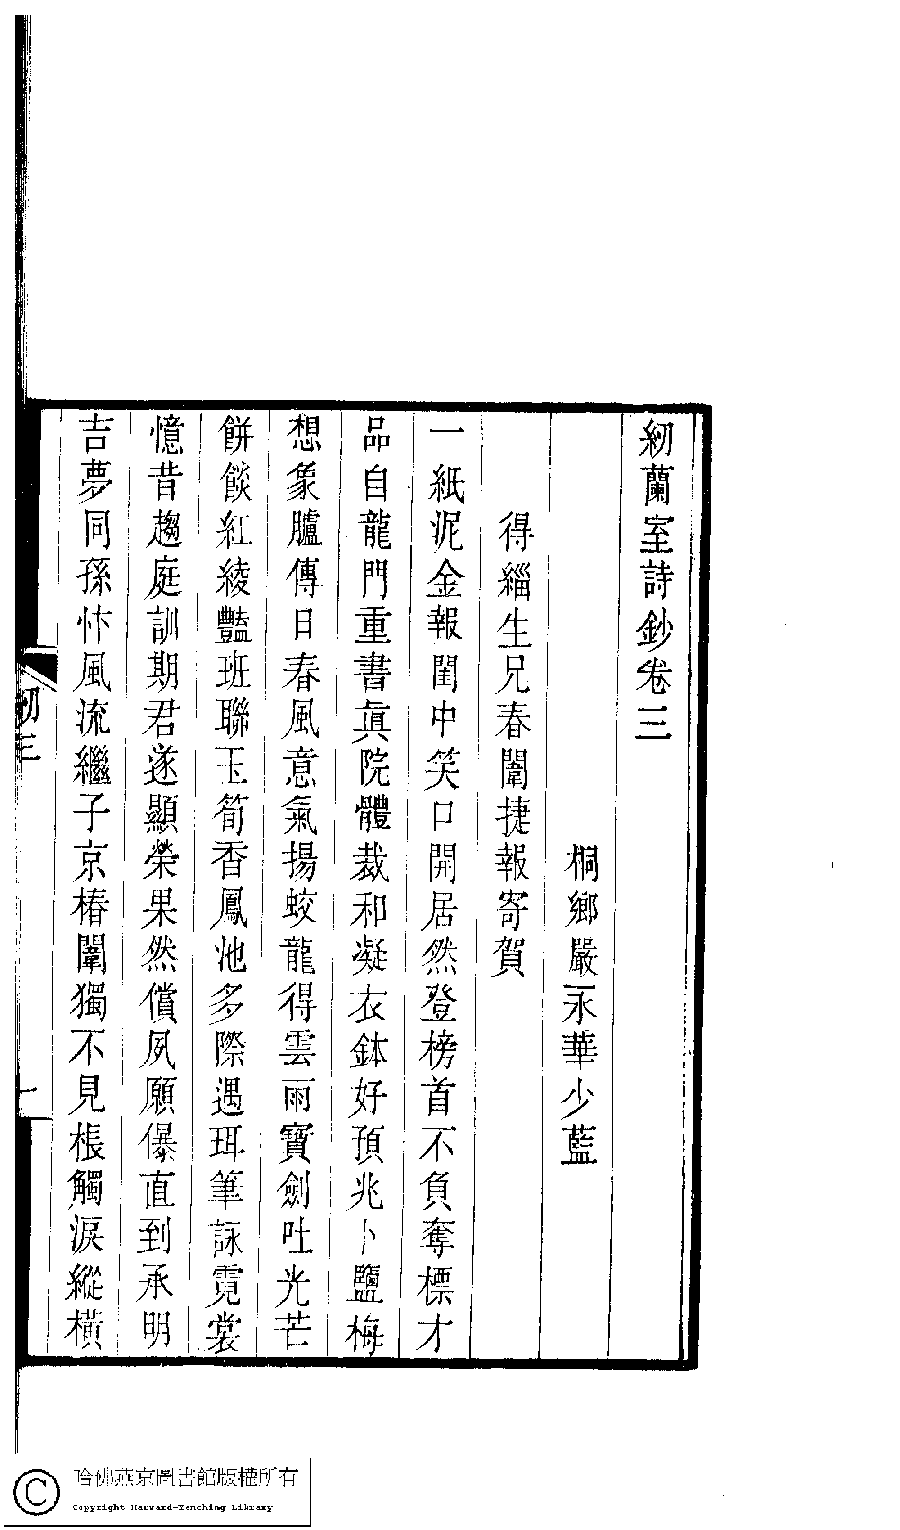 紉蘭室詩鈔卷三
桐鄉嚴永華少藍
得緇生兄春闈捷報寄賀
一紙泥金報閨中笑口開居然登榜首不負奪標才
品自龍門重書眞院體裁和凝衣鉢好預兆卜鹽梅
想象臚傳日春風意氣揚蛟龍得雲雨寶劍吐光芒
餅餤紅綾豔班聯玉筍香鳳池多際遇珥筆詠霓裳
憶昔趨庭訓期君遂顯榮果然償夙願㬥直到承明
吉夢同孫忭風流繼子京椿闈獨不見棖觸淚縱橫
紉三
一
哈佛燕京圖書館版權所有
Copyright Harvard-Yenching Library